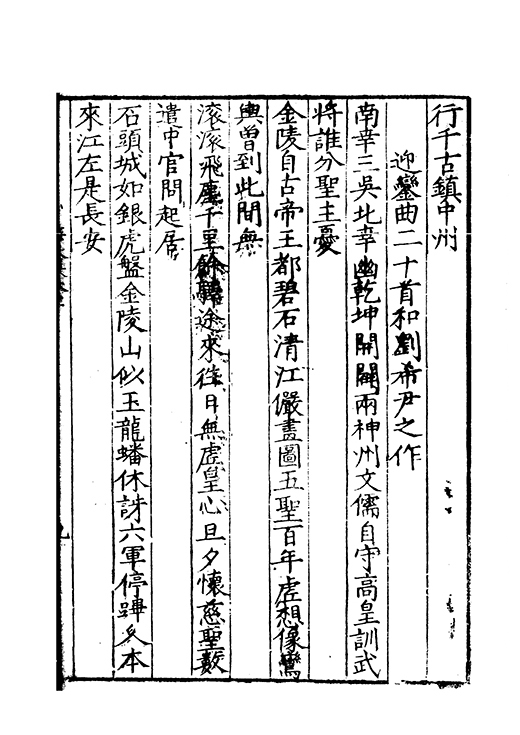 行千古鎮中州
迎鑾曲二十首和劉希尹之作
南幸三吳北幸幽乾坤開闢兩神州文儒自守高皇訓武
將誰分聖主憂
金陵自古帝王都碧石清江儼畫圖五聖百年虛想像鸞
輿曾到此間無
滾滾飛塵千里餘驛途來往日無虛皇心旦夕懷慈聖數
遣中官問起居
石頭城如銀虎盤金陵山似玉龍蟠休訝六軍停蹕久本
來江左是長安